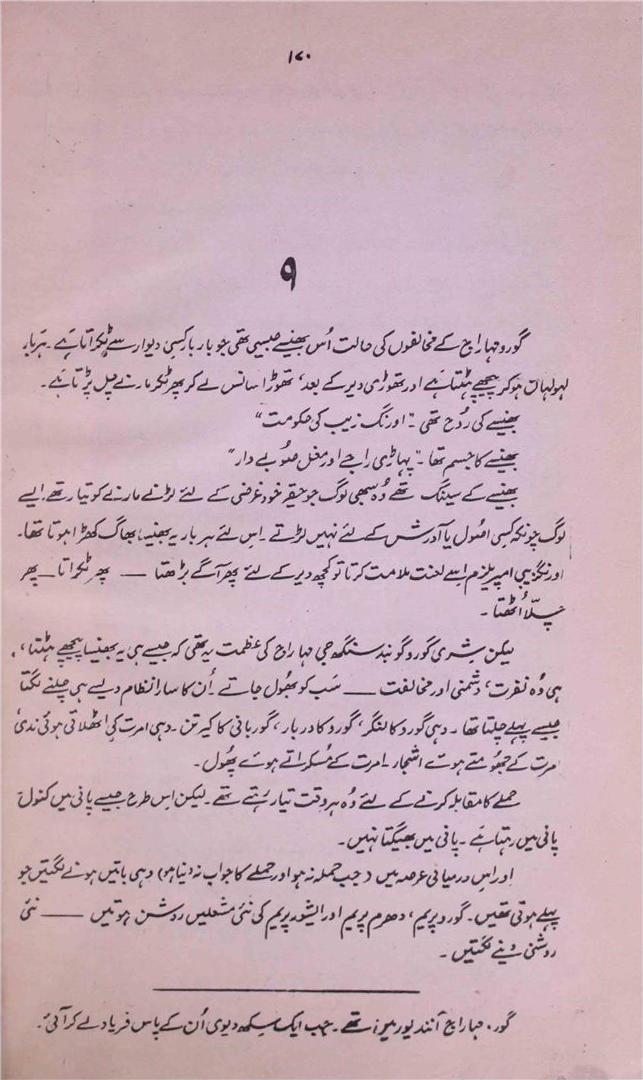 ۱۷۰
۹
گورو مہاراج کے مخالفوں کی حالت اُس بھینسے جیسی تھی جو بار بار کسِی دیوار سے ٹکراتا ہَے۔ ہر بار
لہولہان ہو کر پیچھے ہٹتا ہَے اور تھوڑی دیر کے بعد، تھوڑا سانس لے کر پھر ٹکر مارنے چل پڑتا ہَے۔
بھینسے کی رُوح تھی ۔ "اورنگ زیب کی حکومت"
بھینسے کا جسم تھا ۔ "پہاڑی راجے اور مغل صوُبے دار"
بھینسے کے سینگ تھے وُہ سبھی لوگ جو حقیر خود غرضی کے لئے لڑنے مارنے کو تیار تھے۔ ایسے
لوگ چونکہ کسِی اصُول یا آدرش کے لئے نہیں لڑتے ۔ اس لئے ہر بار یہ بھینسا بھاگ کھڑا ہوتا تھا۔
اورنگزیبی امپیریلزم اسے لعنت ملامت کرتا تو کچھ دیر کے لئے پھر آگے بڑھتا —— پھر ٹکراتا — پھر
چلّا اُٹھتا ۔
لیکن شری گورو گوبند سنگھ جی مہاراج کی عظمت یہ تھی کہ جیسے ہی یہ بھینسا پیچھے ہٹتا،
ہی وُہ نفرت، دُشمنی اور مخالفت —— سَب کو بھُول جاتے ۔ اُن کا سارا نظام ویسے ہی چلنے لگتا
جیسے پہلے چلتا تھا ۔ وہی گورو کا لنگر، گورو کا دربار، گوربانی کا کیرتن ۔ وہی امرت کی اٹھلاتی ہوئی ندی
مرت کے جھوُمتے ہوئے اشجار ۔ امرت کے مُسکراتے ہوئے پھُول۔
حملے کا مقابلہ کرنے کے لئے وُہ ہر وقت تیار رہتے تھے ۔ لیکن اس طرح جیسے پانی میں کنول
پانی میں رہتا ہَے ۔ پانی میں بھیگتا نہیں ۔
اور اس درمیانی عرصہ میں (جب حملہ نہ ہو اور حملے کا جواب نہ دینا ہو) وہی باتیں ہونے لگتیں جو
پہلے ہوتی تھیں ۔ گورو پریم، دھرم پریم اور ایشور پریم کی نئی مشعلیں روشن ہوتیں —— نئی
روشنی دینے لگتیں ۔
گورو مہاراج آنند پور میں تھے ۔ جب ایک سِکھ دیوی اُن کے پاس فریاد لے کر آئی ۔